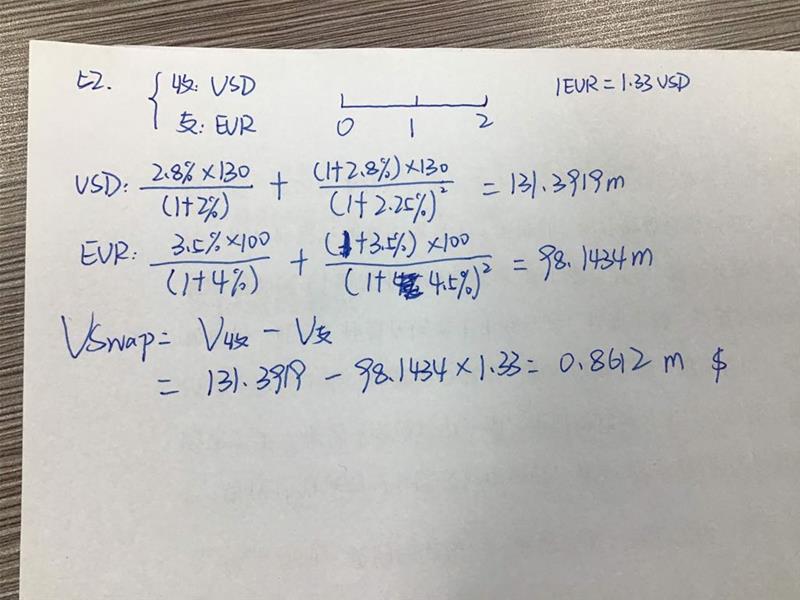 E2. { 收: USD 1EUR = 1.33 USD
支: EUR 0 1 2
USD: 2.8%×130/(1+2%) + (1+2.8%)×130/(1+2.25%)² = 131.3919m
EUR: 3.5%×100/(1+4%) + (1+3.5%)×100/(1+4.5%)² = 98.1434m
VSwap = V收 - V支
= 131.3919 - 98.1434×1.33 = 0.8612 m $